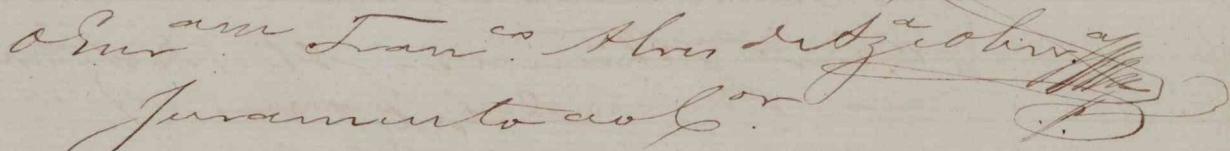 O Escr.am Fran.co Alves de Az.a e Oliv.a
Juramento ao C.or